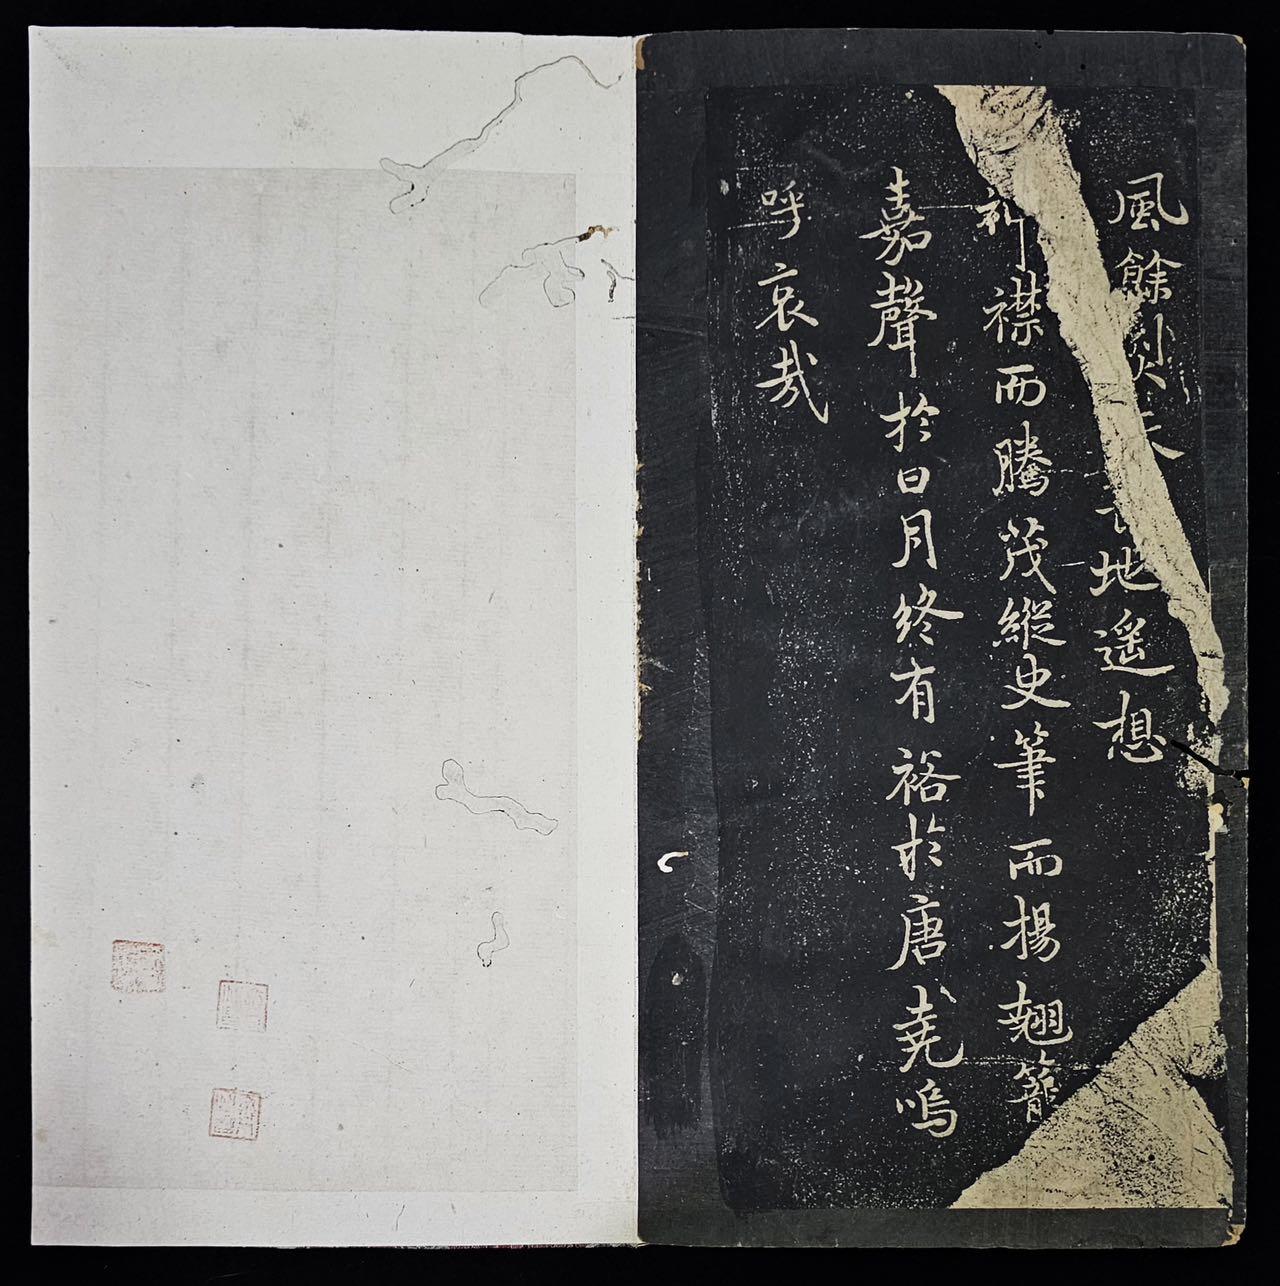 風餘地遙想
襟而騰茂縱史筆而揚翹籠
嘉聲於日月終有裕於唐堯嗚
呼哀哉